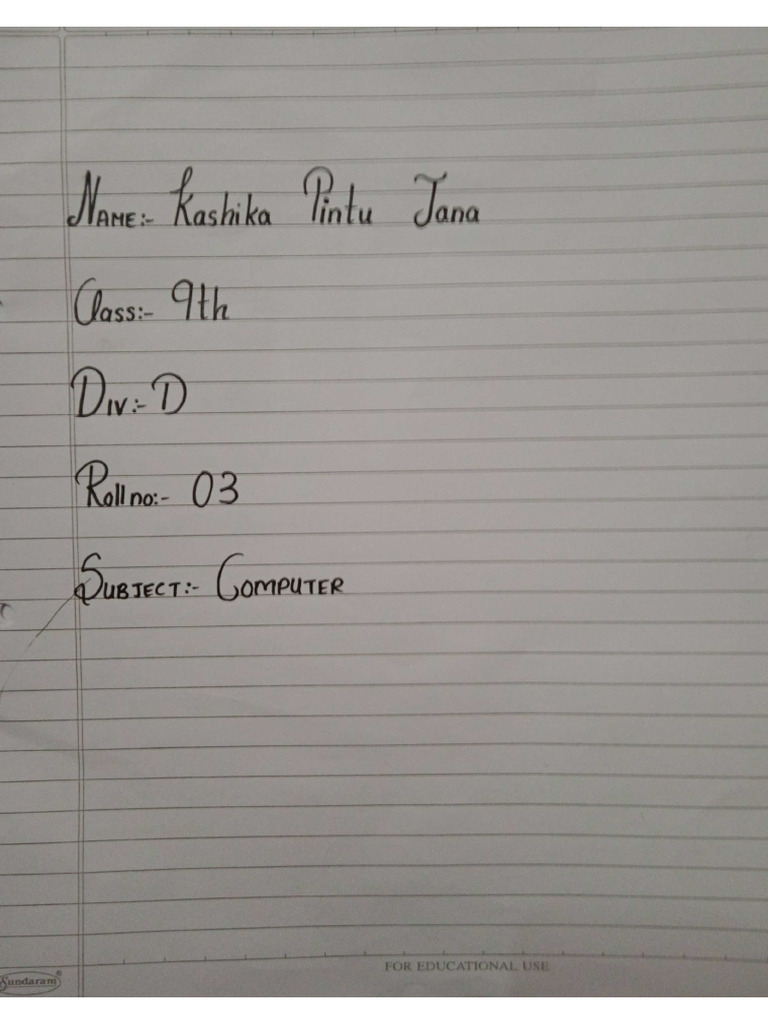 Name:- Kashika Pintu Jana
Class:- 9th
Div:- D
Roll no:- 03
Subject:- Computer
FOR EDUCATIONAL USE
Sundaram®